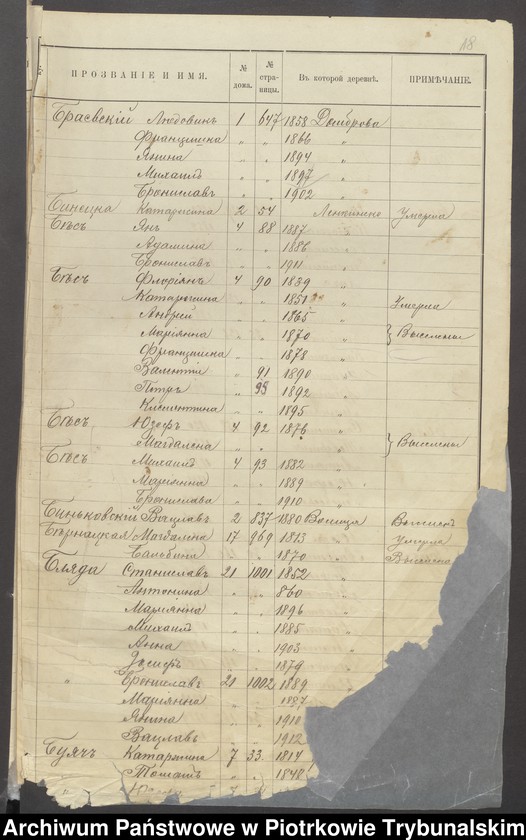 18
ПРОЗВАНІЕ И ИМЯ. № дома. № стра-ницы. Въ которой деревнѣ. ПРИМѢЧАНІЕ.
Браевскій Людовикъ 1 647 1858 Домброва
Францишка „ „ 1866 „
Янина „ „ 1894 „
Михаилъ „ „ 1897 „
Брониславъ „ „ 1902 „
Катаржина 2 54 Умерла
Бѣсъ Янъ 4 88 1887 „
„ „ 1886 „
Брониславъ „ „ 1911 „
Бѣсъ Флоріянъ 4 90 1839 „
Катаржина „ „ 1851 „ Умерла
Андрей „ „ 1865 „
Маріянна „ „ 1870 „ } Выселены
Францишка „ „ 1878 „
Валентій „ 91 1890 „
Петръ „ 99 1892 „
Клементина „ „ 1895 „
Бѣсъ Юзефъ 4 92 1876 „
Магдалена „ „ „ } Выселены
Бѣсъ Михаилъ 4 93 1882 „
Маріянна „ „ 1889 „
Бронислава „ „ 1910 „
Биньковскій Вацлавъ 2 837 1880
Бѣрнацкая Магдалена 17 969 1813 „ Умерла
Бальбина „ „ 1870 „
Бляда Станиславъ 21 1001 1852 „
Антонина „ „ 860 „
Маріянна „ „ 1896 „
Михаилъ „ „ 1885 „
Анна „ „ 1903 „
Іосифъ „ „ 1879 „
„ Брониславъ 21 1002 1889 „
Маріянна „ „ 1887 „
Янина „ „ 1910
Вацлавъ „ „ 1912
Буячъ Катаржина 7 33 1814 „
Томашъ „ „ 1848
Archiwum Państwowe w Piotrkowie Trybunalskim